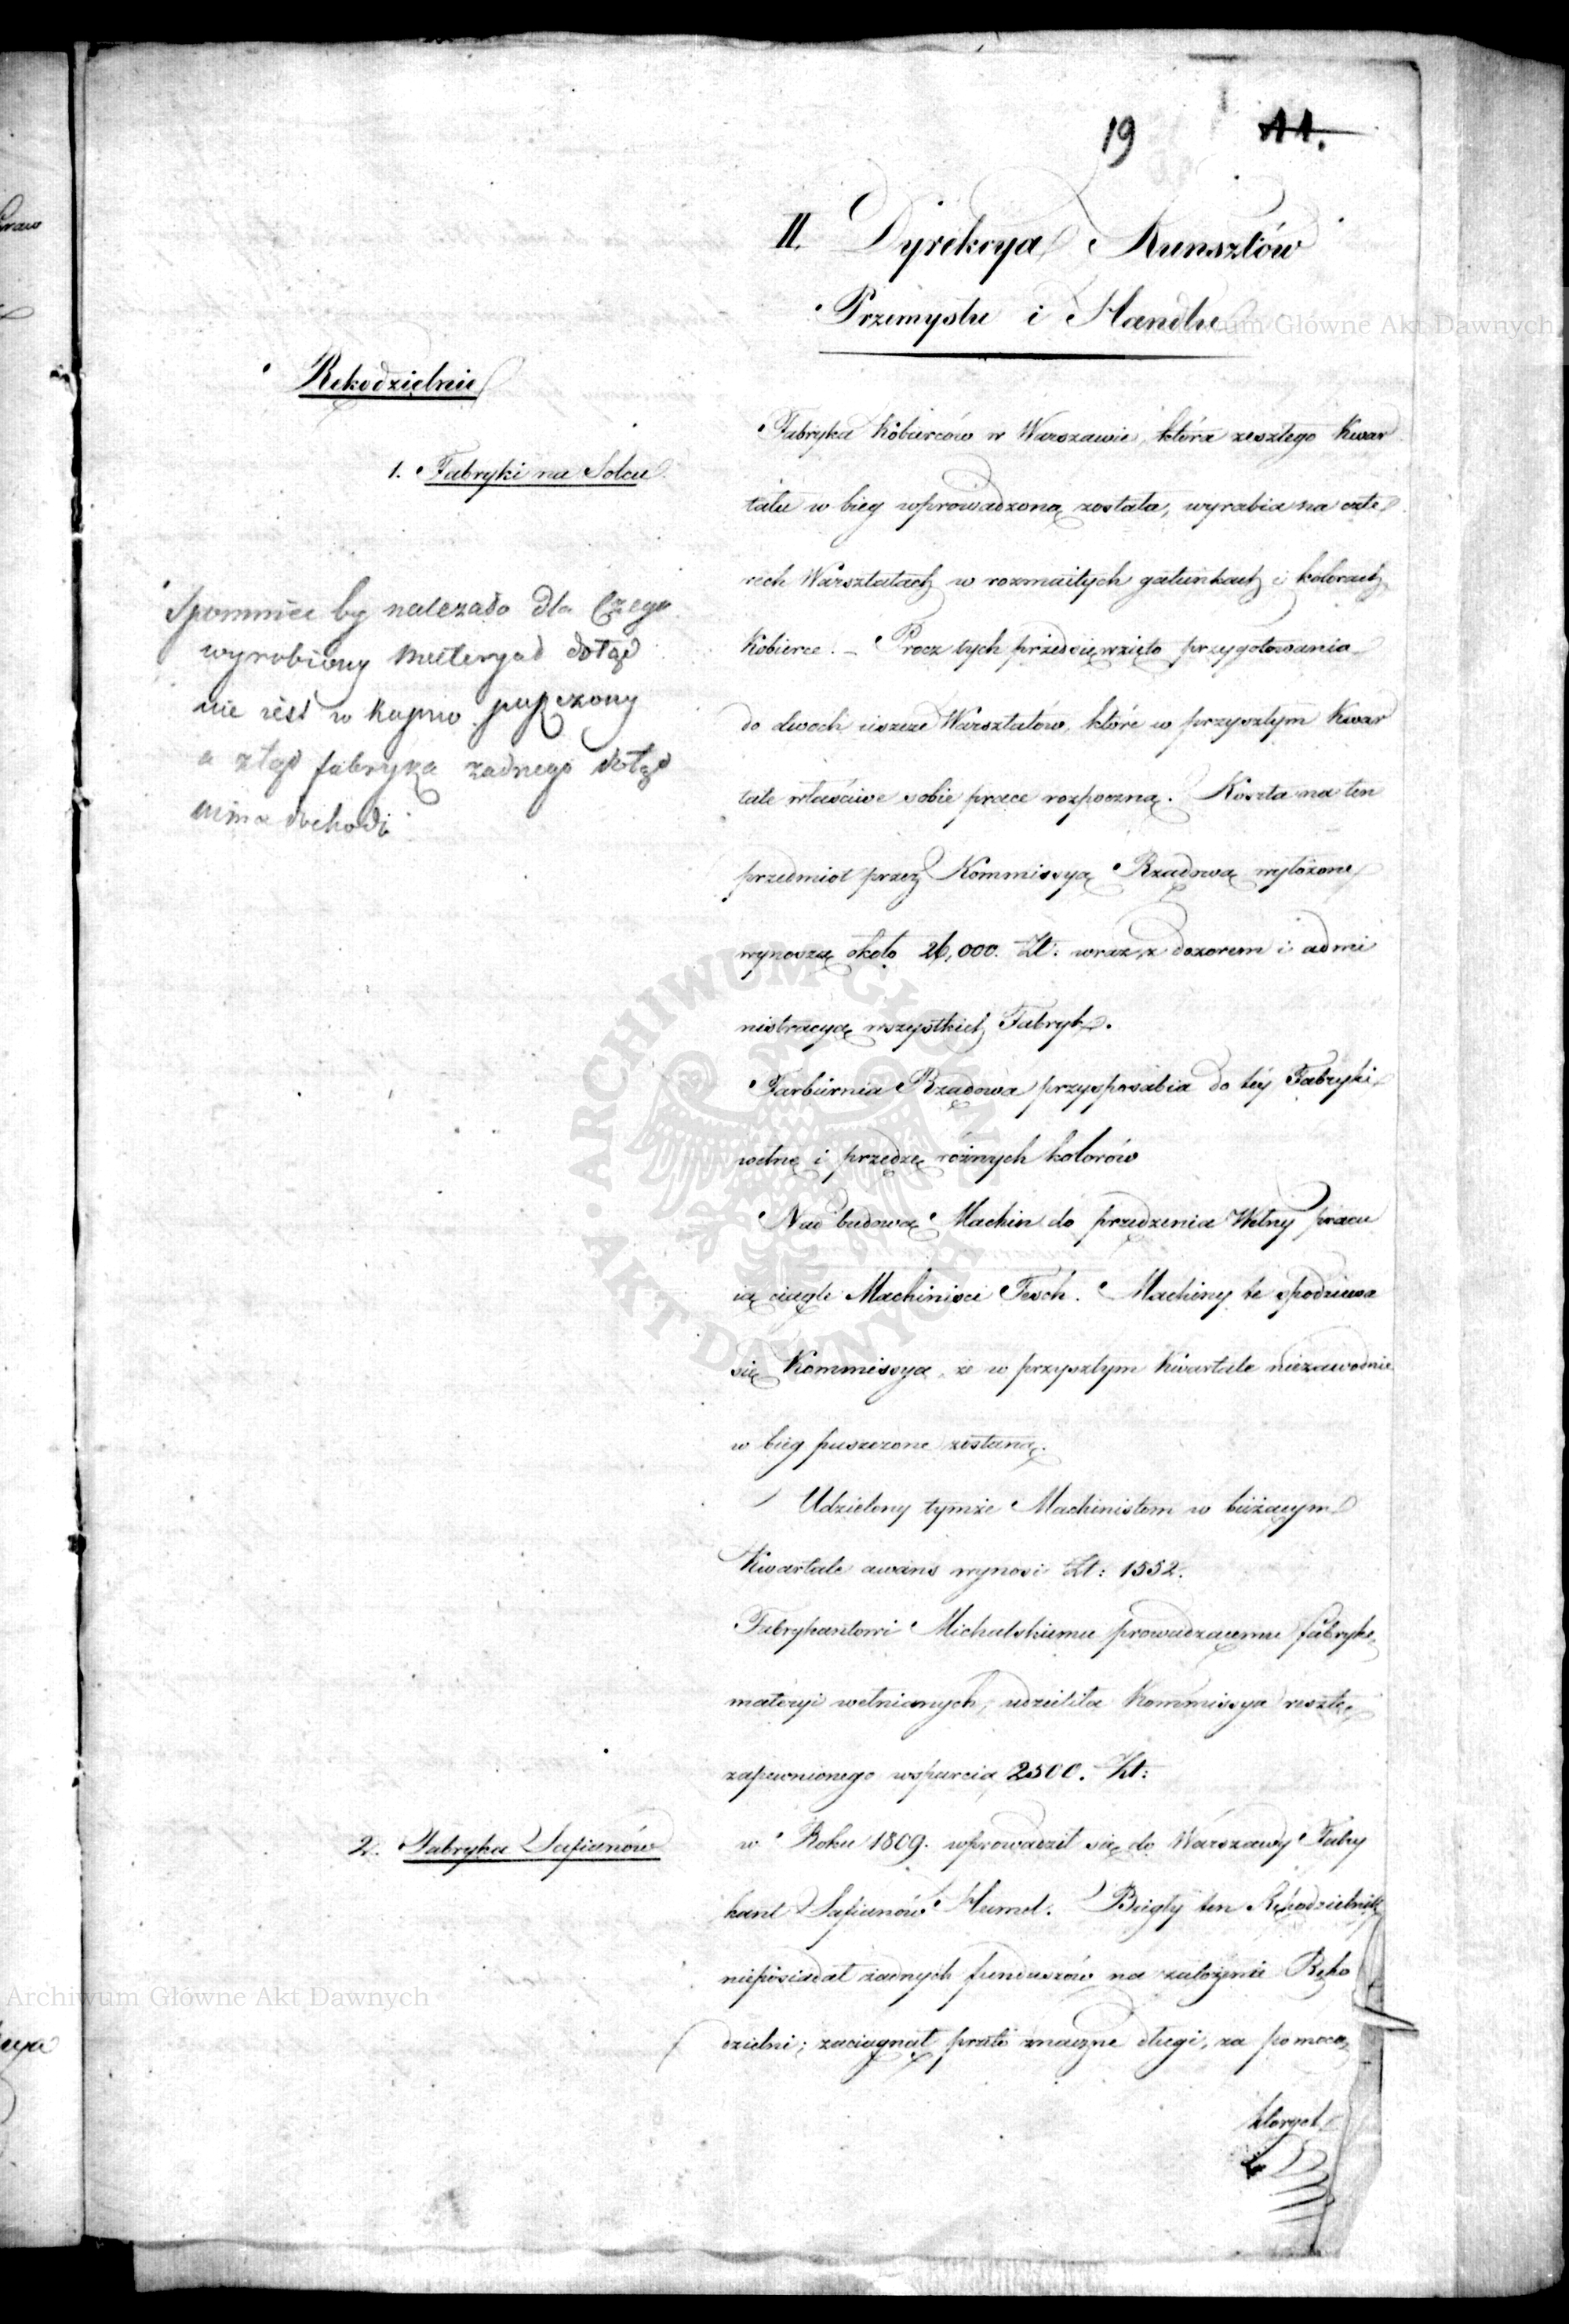 19 11.
II. Dyrekcya Kunsztów
Przemysłu i Handlu
Rękodzielnie
1. Fabryki na Solcu
Spomnieć by należało dla Czego
wyrobiony materyał dotąd
nie iest w kupno puszczony
a ztąd fabryka żadnego dotąd
nima dochodu
Fabryka Kobierców w Warszawie, która zeszłego Kwar
tału w bieg wprowadzoną została, wyrabia na czte
rech Warsztatach w rozmaitych gatunkach i kolorach
Kobierce. – Procz tych przedsięwzięto przygotowania
do dwoch ieszcze Warsztatów, które w przyszłym Kwar
tale właściwe sobie prace rozpoczną. Koszta na ten
przedmiot przez Kommissyą Rządową wyłożone
wynoszą około 26,000. Zł: wraz z dozorem i admi
nistracyą wszystkich Fabryk.
Farbiernia Rządowa przysposabia do téy Fabryki
wełnę i przędzę różnych kolorów
Nad budową Machin do przędzenia Wełny pracu
ią ciągle Machinisci Tesch. Machiny te spodziewa
się Kommissya, że w przyszłym Kwartale niezawodnie
w bieg puszczone zostaną.
Udzielony tymże Machinistom w bieżącym
Kwartale awans wynosi Zł: 1552.
Fabrykantowi Michalskiemu prowadzącemu fabrykę
materyi wełnianych, udzieliła Kommissya resztę
zapewnionego wsparcia 2500. Zł:
2. Fabryka Safianów
w Roku 1809. wprowadził się do Warszawy Fabry
kant Safianów Humel. Biegły ten Rękodzielnik
nieposiadał żadnych funduszów na założenie Ręko
dzielni; zaciągnął przeto znaczne długi, za pomocą
których
Archiwum Główne Akt Dawnych
Archiwum Główne Akt Dawnych
ARCHIWUM GŁÓWNE AKT DAWNYCH